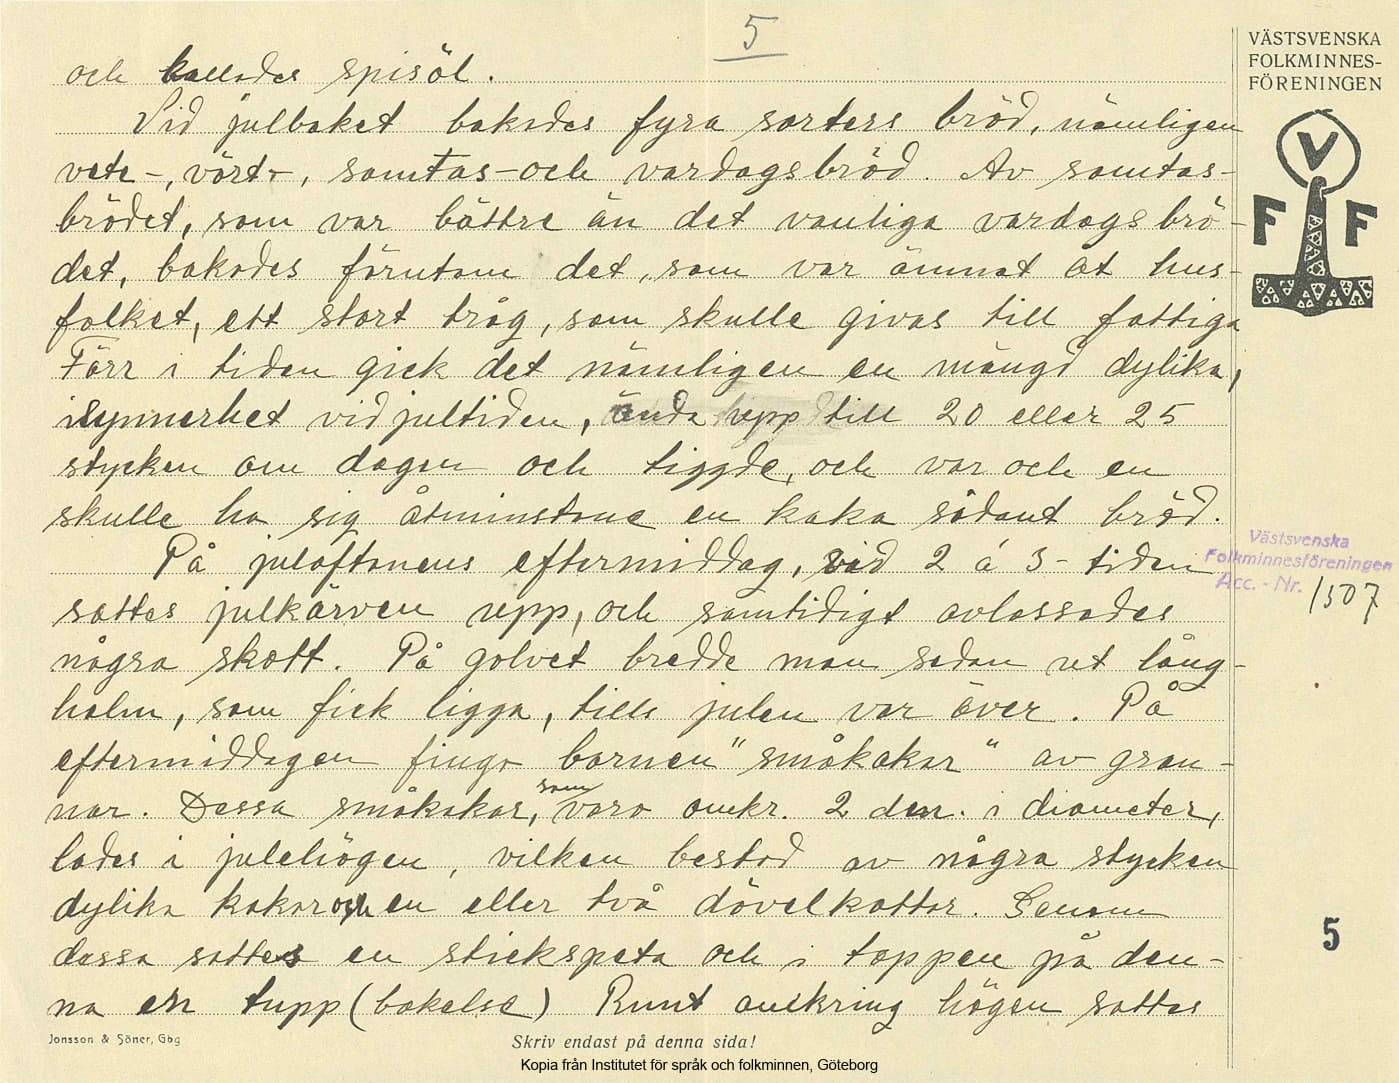 5
och kallades spisöl.
Vid julbaket bakades fyra sorters bröd, nämligen
vete-, vört-, samtas- och vardagsbröd. Av samtas-
brödet, som var bättre än det vanliga vardagsbrö-
det, bakades förutom det, som var ämnat åt hus-
folket, ett stort tråg, som skulle givas till fattiga
Förr i tiden gick det nämligen en mängd dylika,
isynnerhet vid jultiden, ända upp till 20 eller 25
stycken om dagen och tiggde, och var och en
skulle ha sig åtminstone en kaka sådant bröd.
På julaftonens eftermiddag, vid 2 á 3-tiden
sattes julkärven upp, och samtidigt avlossades
några skott. På golvet bredde man sedan ut lång-
halm, som fick ligga, tills julen var över. På
eftermiddagen fingo barnen "småkakor" av gran-
nar. Dessa småkakor, som voro omkr. 2 dm. i diameter,
lades i julehögen, vilken bestod av några stycken
dylika kakor och en eller två dövelkattar. Genom
dessa sattes en stickspeta och i toppen på den-
na en tupp (bakelse) Runt omkring högen sattes
VÄSTSVENSKA
FOLKMINNES-
FÖRENINGEN
V
F F
Västsvenska
Folkminnesföreningen
Acc. - Nr. 1507
5
Jonsson & Söner, Gbg
Skriv endast på denna sida!
Kopia från Institutet för språk och folkminnen, Göteborg